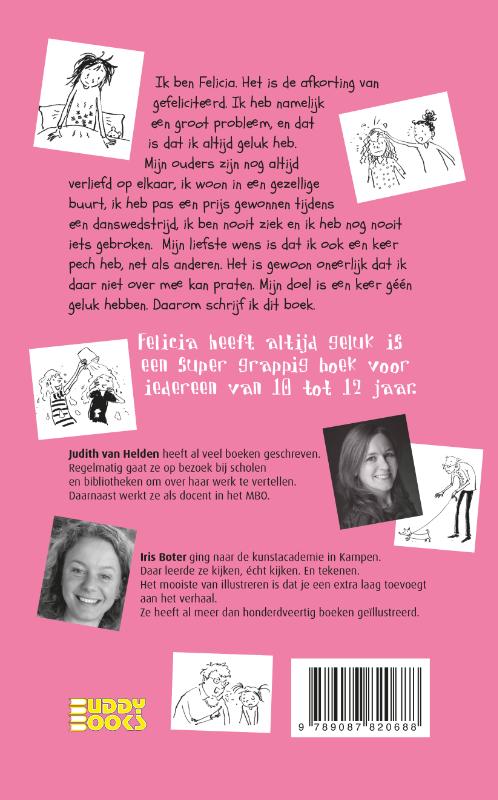 Ik ben Felicia. Het is de afkorting van
gefeliciteerd. Ik heb namelijk
een groot probleem, en dat
is dat ik altijd geluk heb.
Mijn ouders zijn nog altijd
verliefd op elkaar, ik woon in een gezellige
buurt, ik heb pas een prijs gewonnen tijdens
een danswedstrijd, ik ben nooit ziek en ik heb nog nooit
iets gebroken. Mijn liefste wens is dat ik ook een keer
pech heb, net als anderen. Het is gewoon oneerlijk dat ik
daar niet over mee kan praten. Mijn doel is een keer géén
geluk hebben. Daarom schrijf ik dit boek.
Felicia heeft altijd geluk is
een super grappig boek voor
iedereen van 10 tot 12 jaar.
Judith van Helden heeft al veel boeken geschreven.
Regelmatig gaat ze op bezoek bij scholen
en bibliotheken om over haar werk te vertellen.
Daarnaast werkt ze als docent in het MBO.
Iris Boter ging naar de kunstacademie in Kampen.
Daar leerde ze kijken, écht kijken. En tekenen.
Het mooiste van illustreren is dat je een extra laag toevoegt
aan het verhaal.
Ze heeft al meer dan honderdveertig boeken geïllustreerd.
BUDDY
BOOKS
9 789087 820688